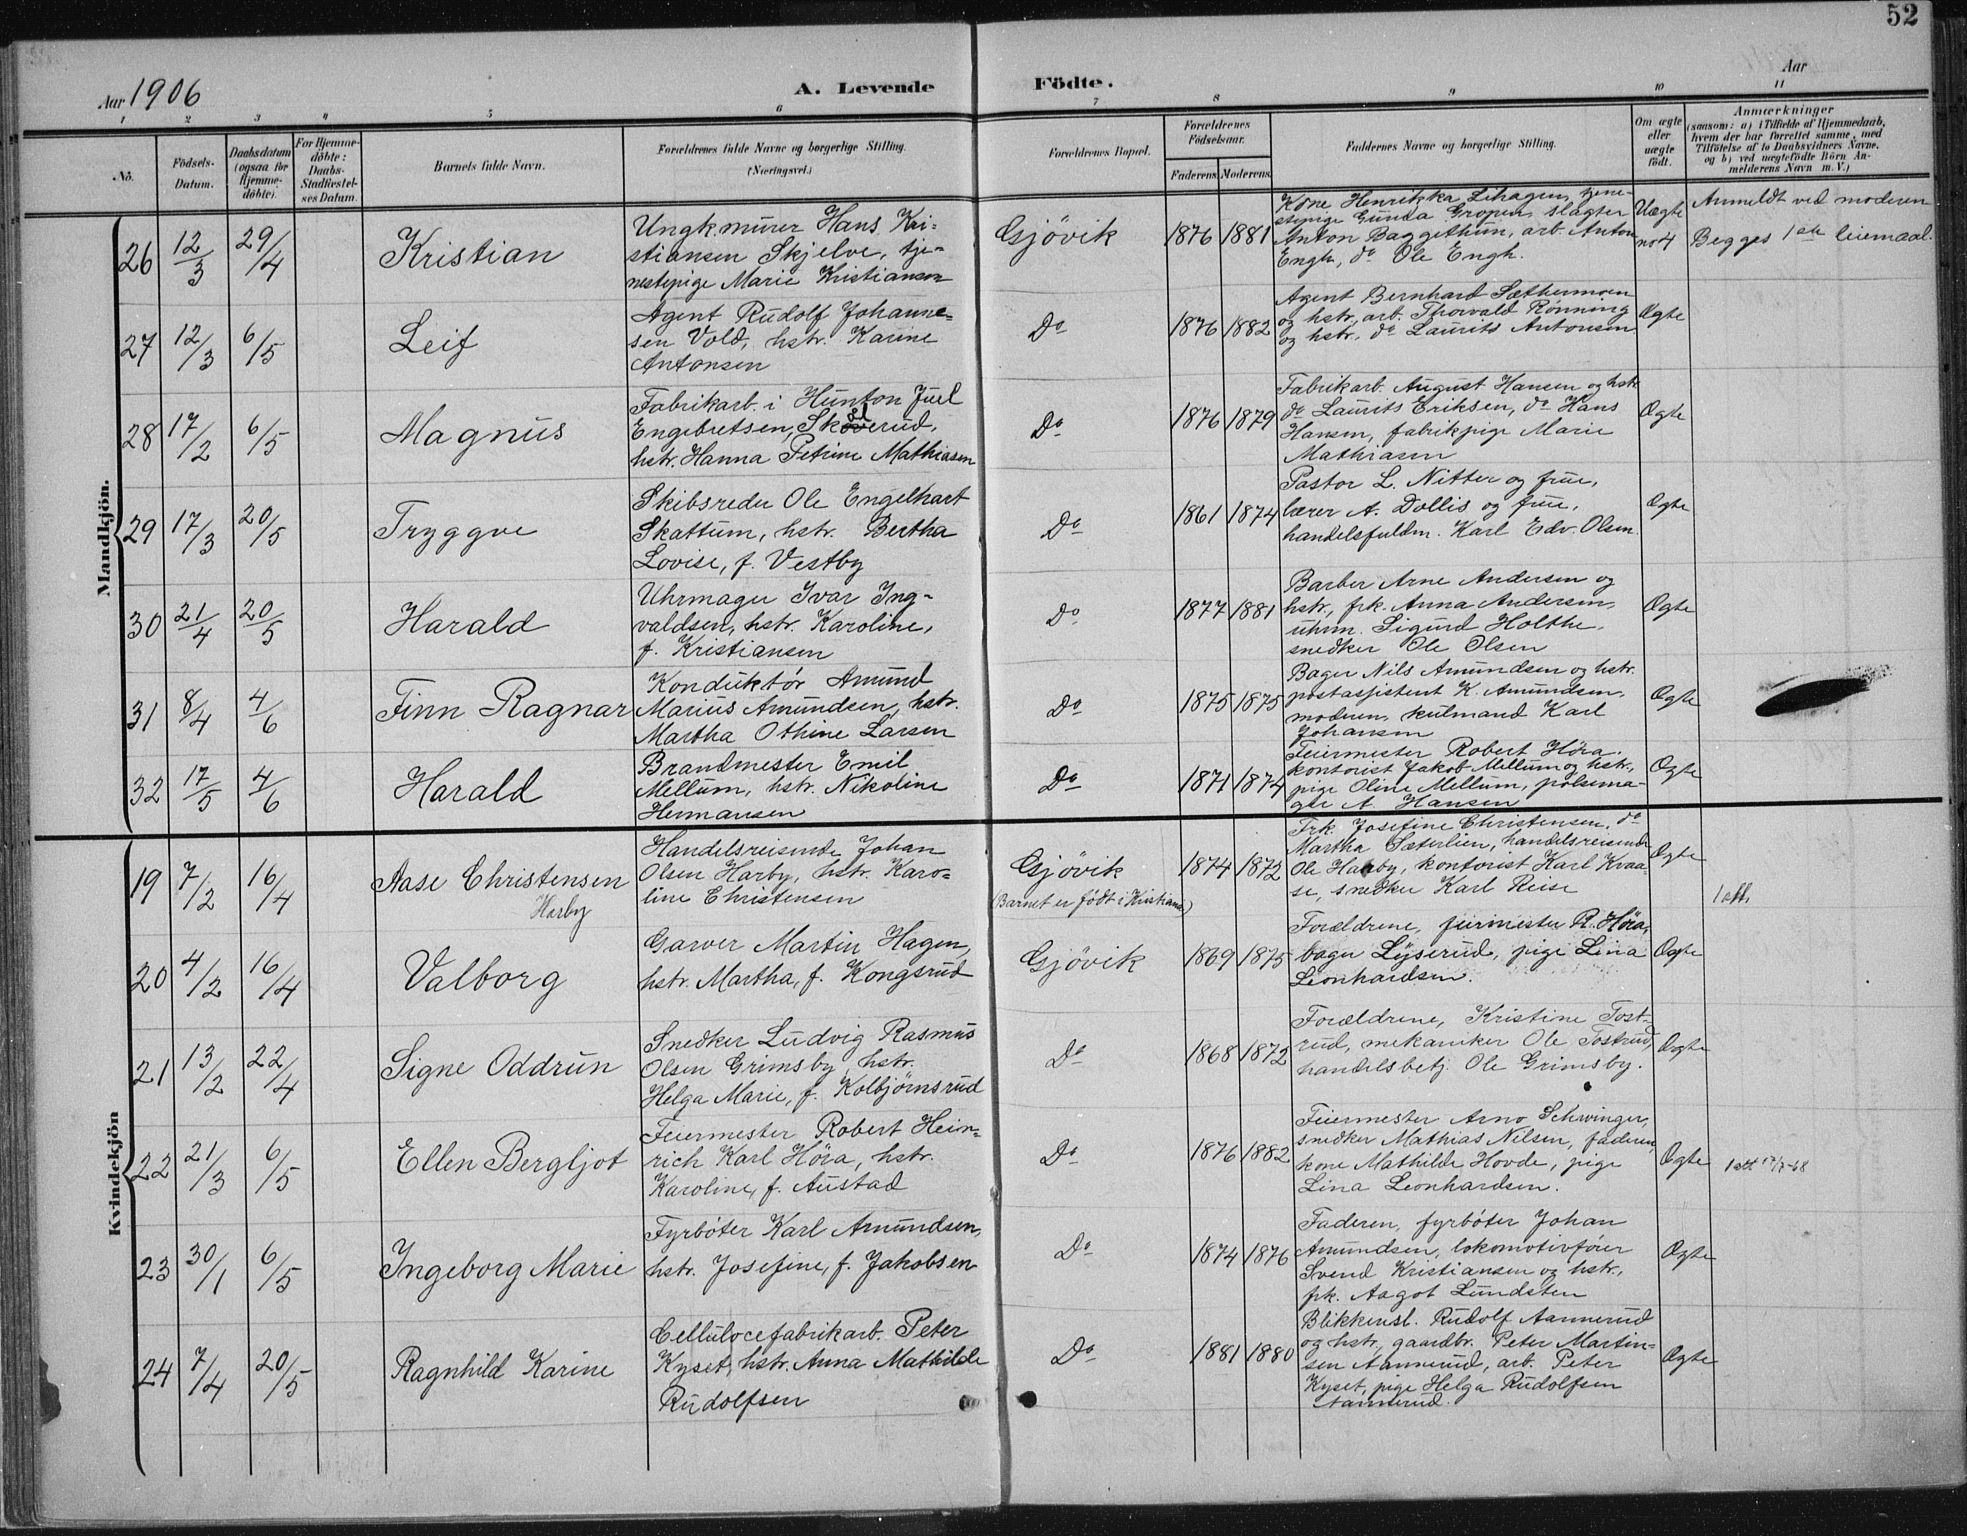 52
Aar 1906
A. Levende Födte.
Aar
1 2 3 4 5 6 7 8 9 10 11
No.
Födsels-
Datum.
Daabsdatum
(ogsaa for
Hjemme-
döbte).
For Hjemme-
döbte:
Daabs-
Stadfæstel-
ses Datum.
Barnets fulde Navn.
Forældrenes fulde Navne og borgerlige Stilling.
(Næringsvei.)
Forældrenes Bopæl.
Forældrenes
Födselsaar.
Faderens. Moderens.
Faddernes Navne og borgerlige Stilling.
Om ægte
eller
uægte
födt.
Anmærkninger
(saasom: a) i Tilfælde af Hjemmedaab,
hvem der har forrettet samme, med
Tilföielse af to Daabsvidners Navne.
og b) ved uægtefödte Börn An-
melderens Navn m. V.)
Mandkjön.
26 12/3 29/4 Kristian
Ungk. murer Hans Kri-
stiansen Skjelve, tje-
nestepige Marie Kristiansen
Gjövik 1876 1881
Kone Henrikka Lihagen, tjene-
stepige Gunda Gropen, slagter
Anton Baggethun, arb. Anton
Engh, do Ole Engh.
Uægte
no 4
Anmeldt ved moderen
Begges 1ste leiemaal.
27 12/3 6/5 Leif
Agent Rudolf Johanne-
sen Vold, hstr. Karine
Antonsen
Do 1876 1882
Agent Bernhard Sæthermoen
og hstr., arb. Thorvald Rønning
og hstr., do Laurits Antonsen
Ægte
28 17/2 6/5 Magnus
Fabrikarb. i Hunton Juel
Engebretsen,
hstr. Hanna Petrine Mathiasen
Do 1876 1879
Fabrikarb. August Hansen og hstr.
do Laurits Eriksen, do Hans
Hansen, fabrikpige Marie
Mathiasen
Ægte
29 17/3 20/5 Tryggve
Skibsreder Ole Engelhart
Skattum, hstr. Bertha
Lovise, f. Vestby
Do 1861 1874
Pastor L. Nitter og frue,
lærer A. Dollis og frue,
handelsfuldm. Karl Edv. Olsen.
Ægte
30 21/4 20/5 Harald
Uhrmager Ivar Ing-
valdsen, hstr. Karoline,
f. Kristiansen
Do 1877 1881
Barber Arne Andersen og
hstr., frk. Anna Andersen,
uhrm. Sigurd Holthe,
snedker Ole Olsen
Ægte
31 8/4 4/6 Finn Ragnar
Konduktör Amund
Marius Amundsen, hstr.
Martha Othine Larsen
Do 1875 1875
Bager Nils Amundsen og hstr.
postassistent K. Amundsen,
moderen, kulmand Karl
Johansen
Ægte
32 17/5 4/6 Harald
Brandmester Emil
Mellum, hstr. Nikoline
Hermansen
Do 1871 1874
Feiermester Robert Höra,
kontorist Jakob Mellum og hstr.,
pige Oline Mellum, pølsema-
A. Hansen
Ægte
Kvindekjön
19 7/2 16/4 Aase Christensen
Harby
Handelsreisende Johan
Olsen Harby, hstr. Karo-
line Christensen
Gjövik
(Barnet er födt i Kristiania)
1874 1872
Frk. Josefine Christensen, do
Martha Sæterlien, handelsreisende
Ole Harby, kontorist Karl Kvaa-
se, snedker Karl Reise
Ægte
1 att.
20 4/2 16/4 Valborg
Garver Martin Hagen,
hstr. Martha, f. Kongsrud
Gjövik 1869 1875
Forældrene, feiermester R. Höra,
bager Lyserud, pige Lina
Leonhardsen.
Ægte
21 13/2 22/4 Signe Oddrun
Snedker Ludvig Rasmus
Olsen Grimsby, hstr.
Helga Marie, f. Kolbjörnsrud
Do 1868 1872
Forældrene, Kristine Tost-
rud, mekaniker Ole Tostrud,
handelsbetj. Ole Grimsby.
Ægte
22 21/3 6/5 Ellen Bergljot
Feiermester Robert Hein-
rich Karl Höra, hstr.
Karoline, f. Austad
Do 1876 1882
Feiermester Arno Schwinger,
snedker Mathias Nilsen, faderen,
kone Mathilde Hovde, pige
Lina Leonhardsen.
Ægte
23 30/1 6/5 Ingeborg Marie
Fyrböter Karl Amundsen,
hstr. Josefine, f. Jakobsen
Do 1874 1876
Faderen, fyrböter Johan
Amundsen, lokomotivförer
Svend Kristiansen og hstr.,
frk. Aagot Lundsten
Ægte
24 7/4 20/5 Ragnhild Karine
Cellulocefabrikarb. Peter
Kyset, hstr. Anna Mathilde
Rudolfsen
Do 1881 1880
Blikkensl. Rudolf Aannerud
og hstr., gaardbr. Peter Martin-
sen Aannerud, arb. Peter
Kyset, pige Helga Rudolfsen
Aannerud.
Ægte